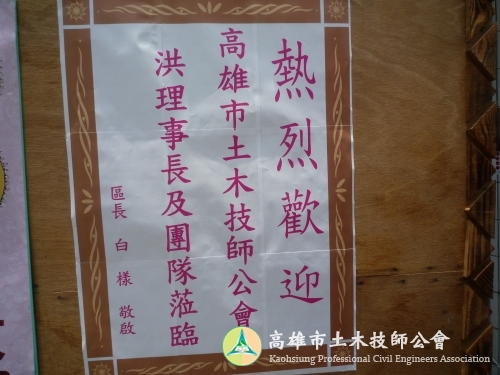 熱烈歡迎
高雄市土木技師公會
洪理事長及團隊蒞臨
區長 白樣 敬啟
高雄市土木技師公會
Kaohsiung Professional Civil Engineers Association